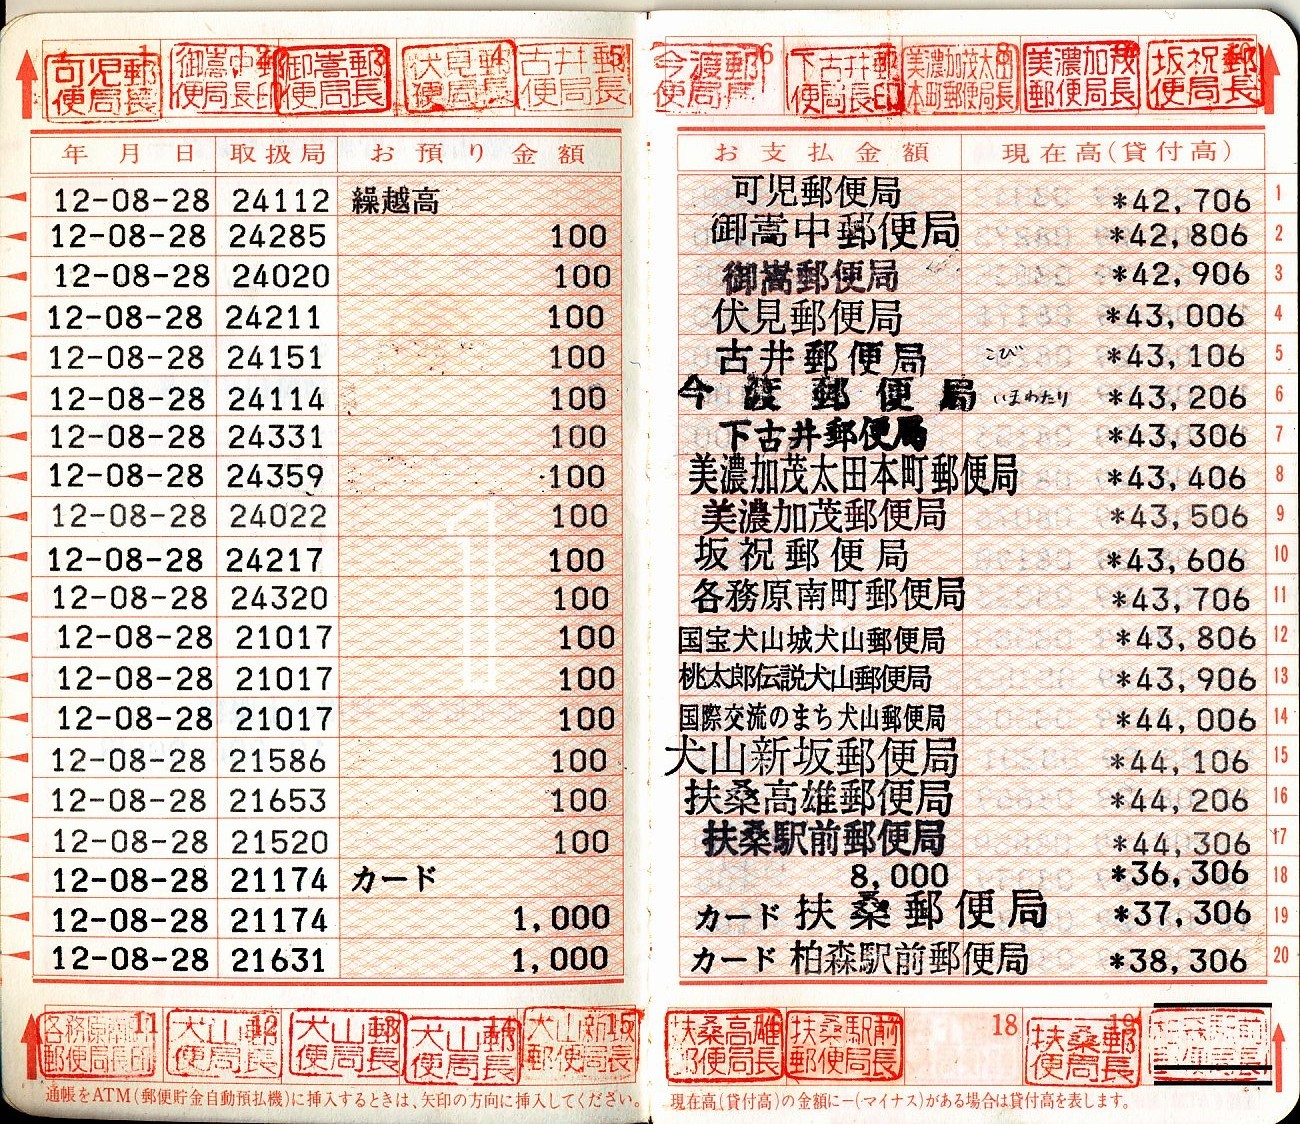 1 可児郵便局長
2 御嵩中郵便局長印
3 御嵩郵便局長
4 伏見郵便局長
5 古井郵便局長
6 今渡郵便局
7 下古井郵便局長印
8 美濃加茂太田本町郵便局長
美濃加茂郵便局長
坂祝郵便局長
年月日 取扱局 お預り金額 お支払金額 現在高(貸付高)
12-08-28 24112 繰越高 可児郵便局 *42,706 1
12-08-28 24285 100 御嵩中郵便局 *42,806 2
12-08-28 24020 100 御嵩郵便局 *42,906 3
12-08-28 24211 100 伏見郵便局 *43,006 4
12-08-28 24151 100 古井郵便局 こび *43,106 5
12-08-28 24114 100 今渡郵便局 いまわたり *43,206 6
12-08-28 24331 100 下古井郵便局 *43,306 7
12-08-28 24359 100 美濃加茂太田本町郵便局 *43,406 8
12-08-28 24022 100 美濃加茂郵便局 *43,506 9
12-08-28 24217 100 坂祝郵便局 *43,606 10
12-08-28 24320 100 各務原南町郵便局 *43,706 11
12-08-28 21017 100 国宝犬山城犬山郵便局 *43,806 12
12-08-28 21017 100 桃太郎伝説犬山郵便局 *43,906 13
12-08-28 21017 100 国際交流のまち犬山郵便局 *44,006 14
12-08-28 21586 100 犬山新坂郵便局 *44,106 15
12-08-28 21653 100 扶桑高雄郵便局 *44,206 16
12-08-28 21520 100 扶桑駅前郵便局 *44,306 17
12-08-28 21174 カード 8,000 *36,306 18
12-08-28 21174 1,000 カード 扶桑郵便局 *37,306 19
12-08-28 21631 1,000 カード 柏森駅前郵便局 *38,306 20
11 各務原南町郵便局長印
12 犬山郵便局長
13 犬山郵便局長
14 犬山郵便局長
15 犬山新坂郵便局長
扶桑高雄郵便局長
扶桑駅前郵便局長
18
19 扶桑郵便局長
通帳をATM(郵便貯金自動預払機)に挿入するときは、矢印の方向に挿入してください。
現在高(貸付高)の金額に−(マイナス)がある場合は貸付高を表します。